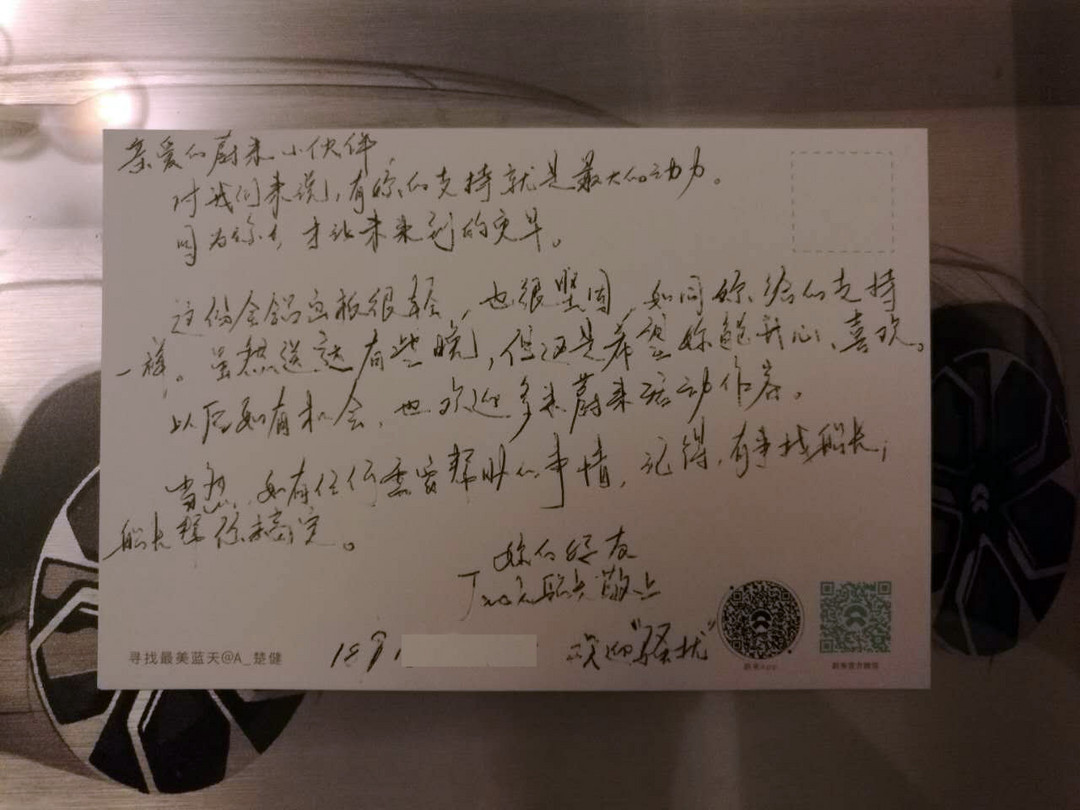 亲爱的蔚来小伙伴,
对我们来说,有妳的支持就是最大的动力。
因为妳们,才让未来到的更早。
这份金铝画板很轻,也很坚固,如同妳给的支持
一样。虽然送达有些晚,但还是希望妳能开心、喜欢。
以后如有机会,也欢迎多来蔚来活动作客。
当然,如有任何需要帮助的事情,记得,有事找船长,
船长帮你搞定。
妳的好友
船长 敬上
189 欢迎"骚扰"
寻找最美蓝天@A_楚健
蔚来App
蔚来官方微信